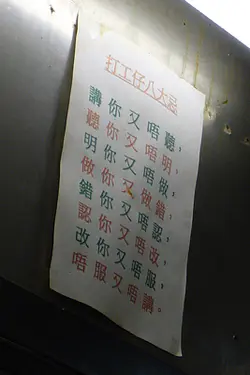 打工仔八大忌
講你又唔聽，
聽你又唔明，
明你又唔做，
做你又做錯，
錯你又唔認，
認你又唔改，
改你又唔服，
唔服又唔講。